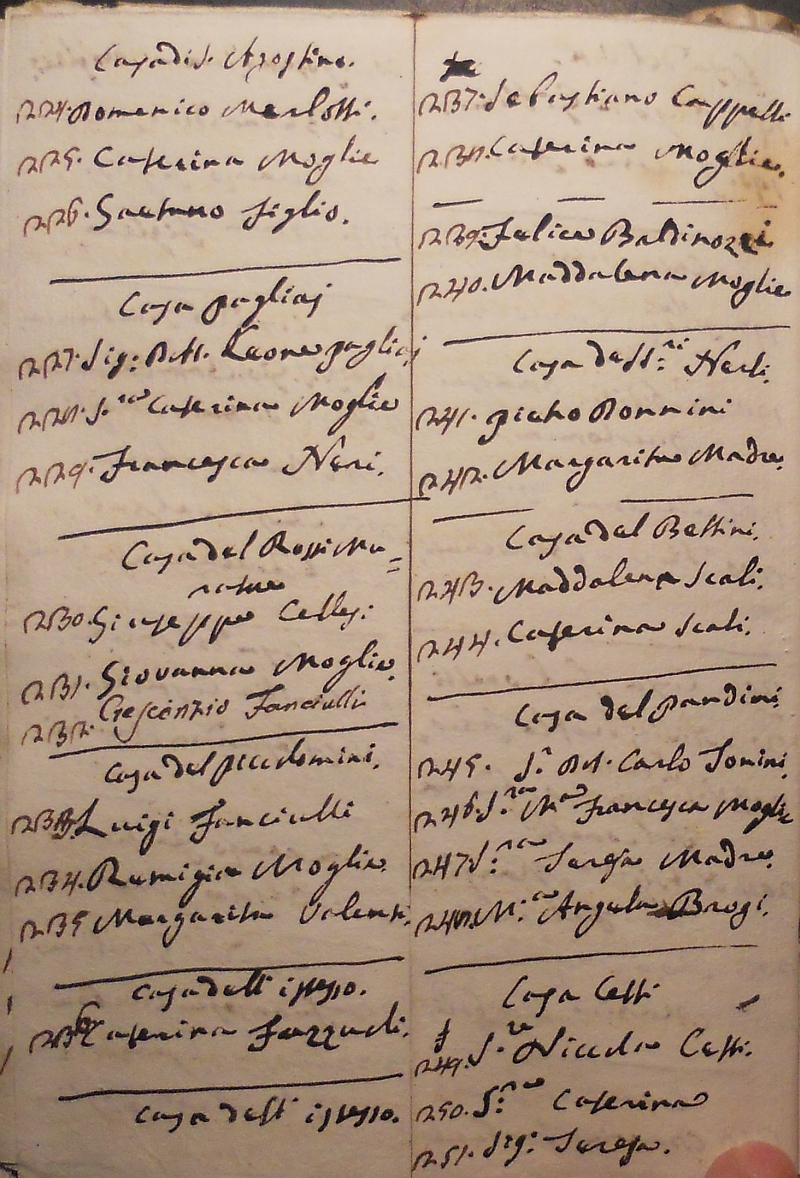 Casa di S. Agostino.
224. Domenico Merlotti.
225. Caterina Moglie
226. Gaetano figlio.
Casa pagliaj
227. Sig: Dott. Leone pagliaj
228. S.ra Caterina Moglie
229. Francesca Neri.
Casa del Rossi Mu=
ratore
230. Giuseppe Cellesi
231. Giovanna Moglie.
232. Crescenzio Fanciulli
Casa del piccolomini.
233. Luigi Fanciulli
234. Remigia Moglie.
235 Margarita Valenti.
Casa dell' istesso.
236 Caterina Fazzuoli.
Casa dell' istesso.
237. Sebastiano Cappelli
238. Caterina Moglie.
239. Felice Baldinozzi
240. Maddalena Moglie
Casa de SS.ri Nerli.
241. pietro Bonnini
242. Margarita Madre.
Casa del Bettini.
243. Maddalena Scali.
244. Caterina Scali.
Casa del pandini
245. S.r Dot. Carlo Tonini.
246 S.ra M.a Francesca Moglie
247 S.ra Teresa Madre.
248. M.a Angela Brogi.
Casa Cetti
249. S.re Niccola Cetti.
250. S.ra Caterina
251. Sig.ra Teresa.